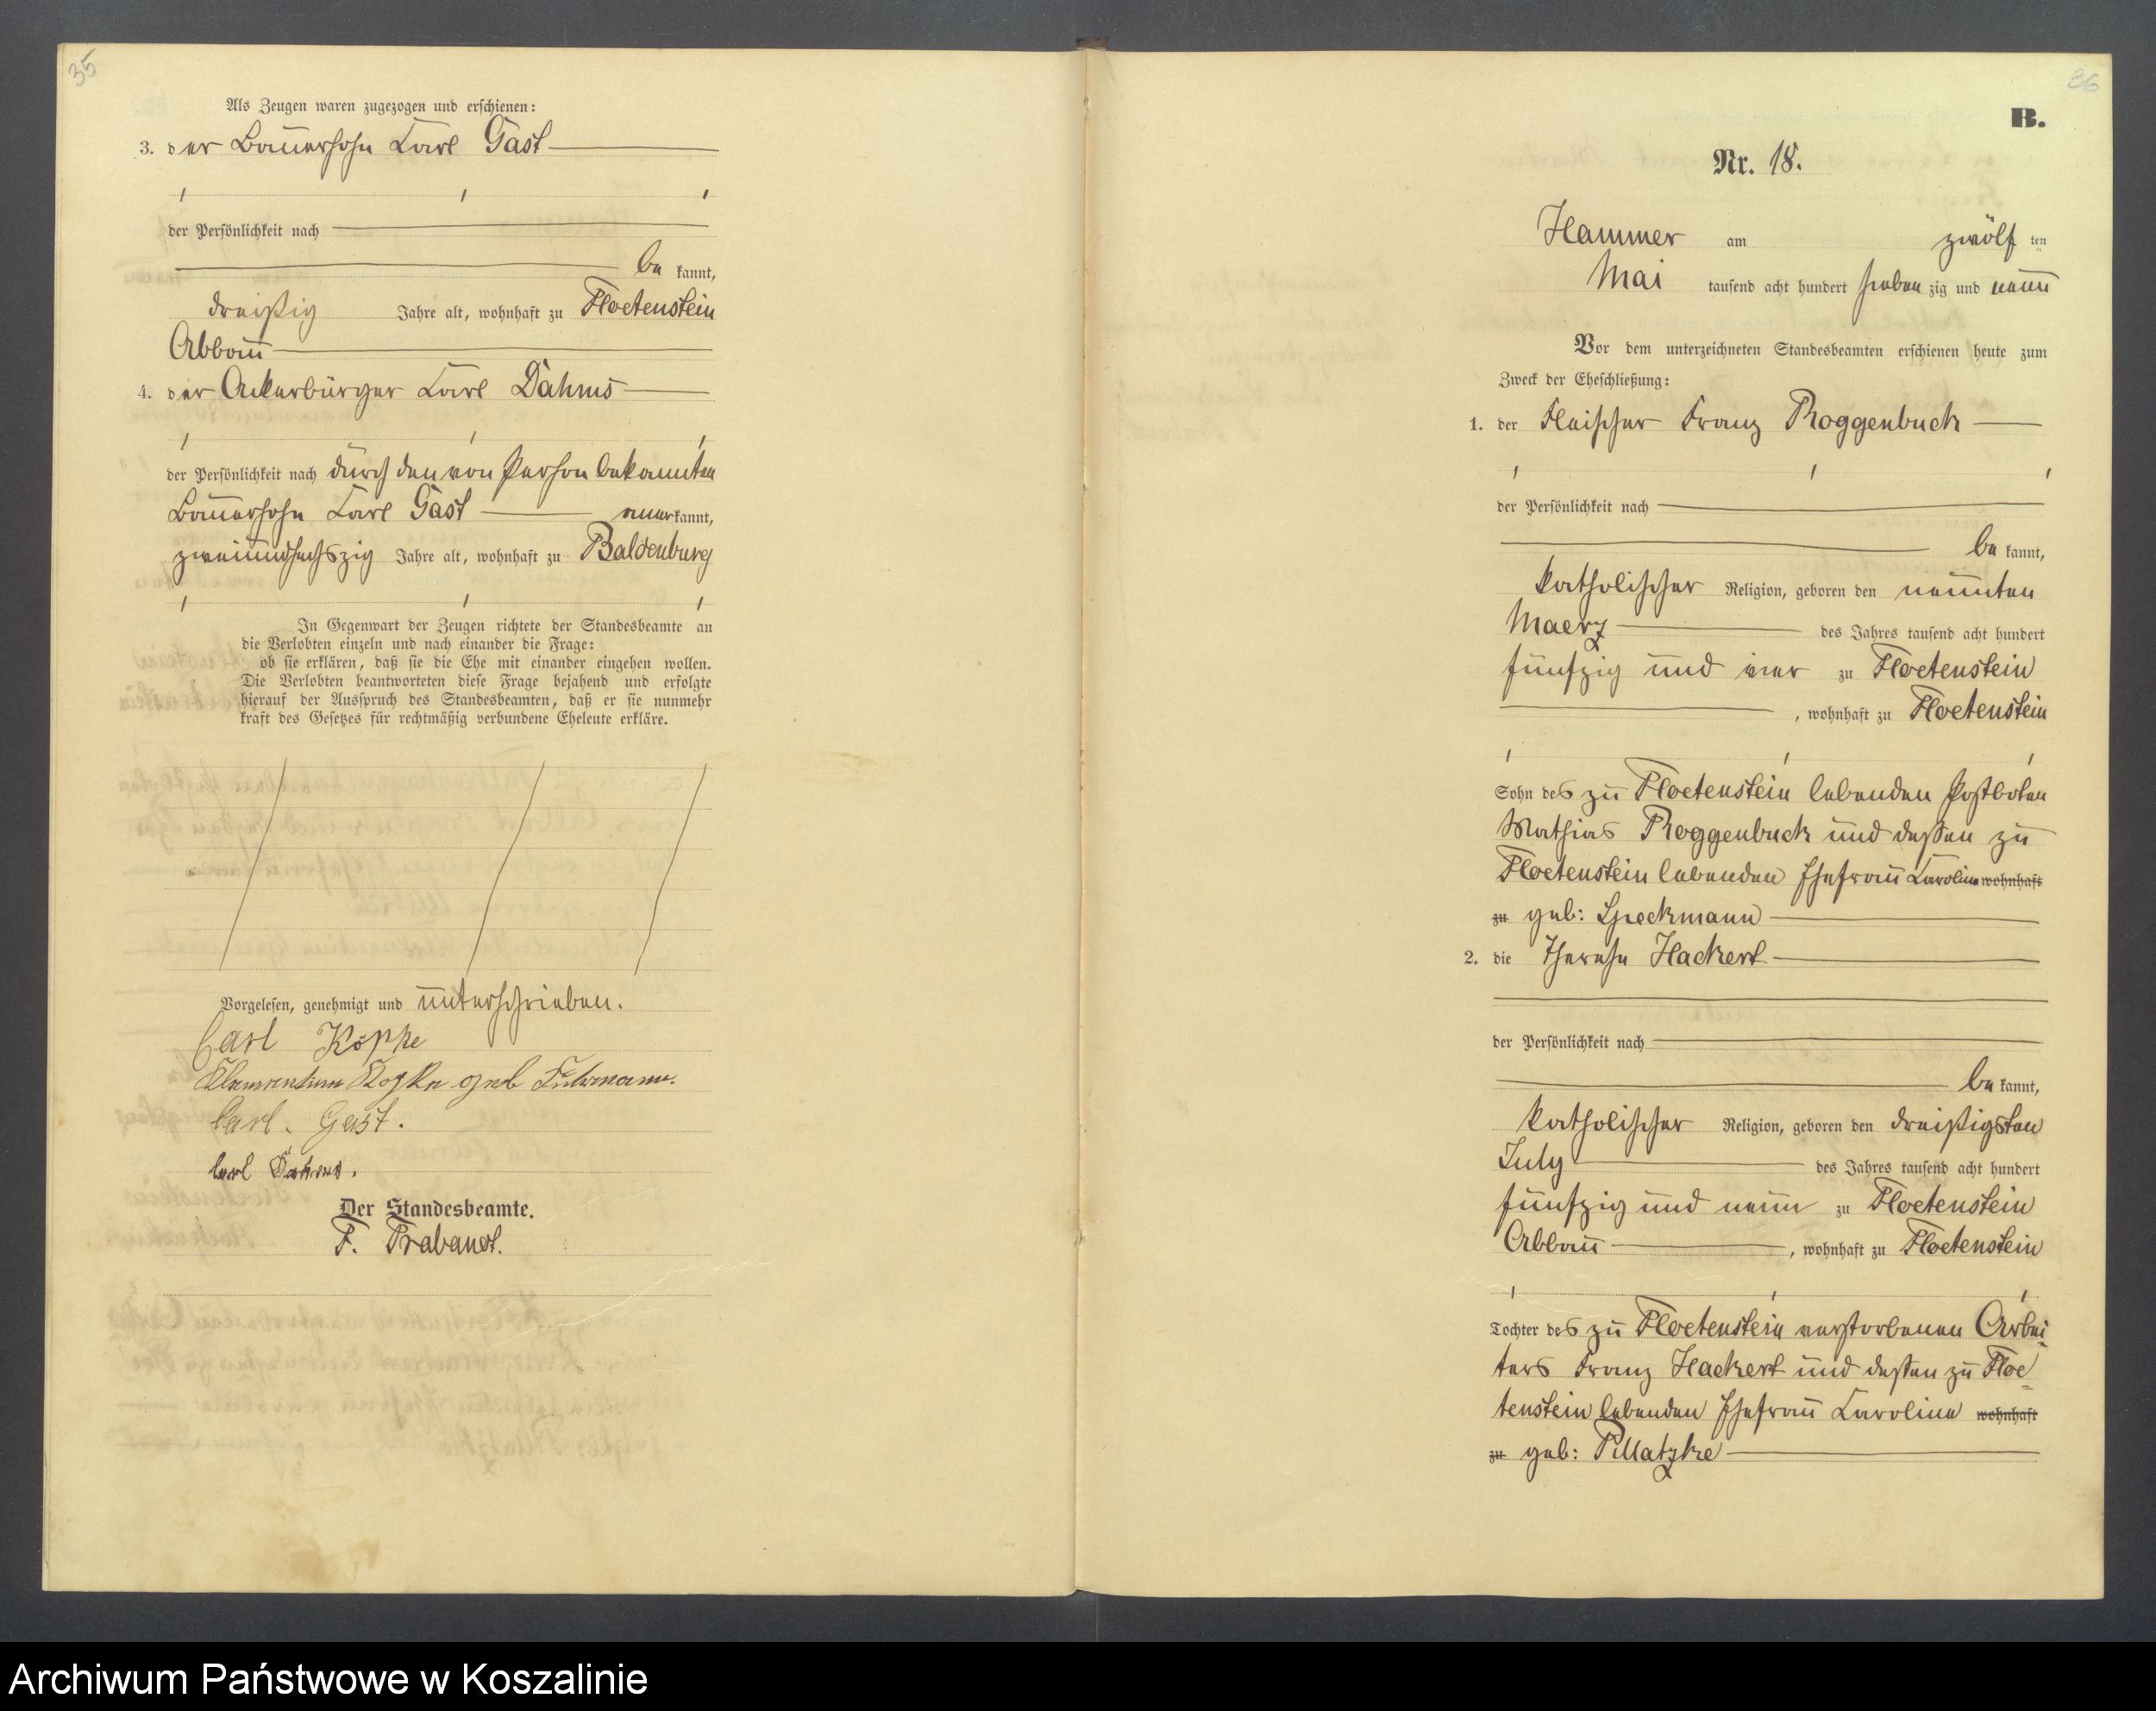 35
Als Zeugen waren zugezogen und erschienen:
3. der Bauersohn Carl Gast
der Persönlichkeit nach
be kannt,
dreißig Jahre alt, wohnhaft zu Floetenstein
Abbau
4. der Ackerbürger Carl Dahms
der Persönlichkeit nach durch den von Person bekannten
Bauersohn Carl Gast anerkannt,
zweiundsechszig Jahre alt, wohnhaft zu Baldenburg
In Gegenwart der Zeugen richtete der Standesbeamte an
die Verlobten einzeln und nach einander die Frage:
ob sie erklären, daß sie die Ehe mit einander eingehen wollen.
Die Verlobten beantworteten diese Frage bejahend und erfolgte
hierauf der Ausspruch des Standesbeamten, daß er sie nunmehr
kraft des Gesetzes für rechtmäßig verbundene Eheleute erkläre.
Vorgelesen, genehmigt und unterschrieben.
Carl Köpke
geb Fuhrmann.
Carl. Gast.
Carl Dahms.
Der Standesbeamte.
F. Trabandt.
36
B.
Nr. 18.
Hammer am zwölf ten
Mai tausend acht hundert sieben zig und neun
Vor dem unterzeichneten Standesbeamten erschienen heute zum
Zweck der Eheschließung:
1. der Fleischer Franz Roggenbuck
der Persönlichkeit nach
be kannt,
katholischer Religion, geboren den neunten
Maerz des Jahres tausend acht hundert
fünfzig und vier zu Floetenstein
, wohnhaft zu Floetenstein
Sohn des zu Floetenstein lebenden Postboten
Mathias Roggenbuck und dessen zu
Floetenstein lebenden Ehefrau Caroline wohnhaft
zu geb: Speckmann
2. die Therese Hackert
der Persönlichkeit nach
be kannt,
katholischer Religion, geboren den dreißigsten
July des Jahres tausend acht hundert
fünfzig und neun zu Floetenstein
Abbau , wohnhaft zu Floetenstein
Tochter des zu Floetenstein verstorbenen Arbei-
ters Franz Hackert und dessen zu Floe-
tenstein lebenden Ehefrau Caroline wohnhaft
zu geb: Pillatzke
Archiwum Państwowe w Koszalinie